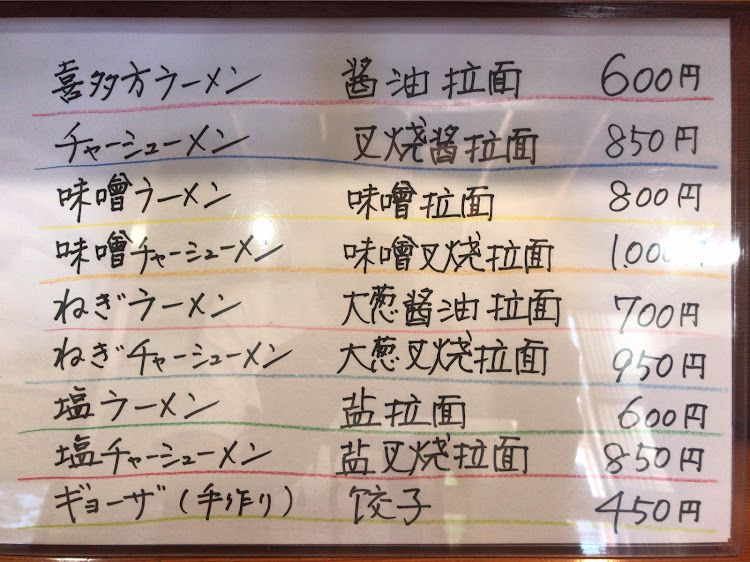 喜多方ラーメン 酱油拉面 600円
チャーシューメン 叉烧酱拉面 850円
味噌ラーメン 味噌拉面 800円
味噌チャーシューメン 味噌叉烧拉面 1.000円
ねぎラーメン 大葱酱油拉面 700円
ねぎチャーシューメン 大葱叉烧拉面 950円
塩ラーメン 盐拉面 600円
塩チャーシューメン 盐叉烧拉面 850円
ギョーザ(手作り) 饺子 450円